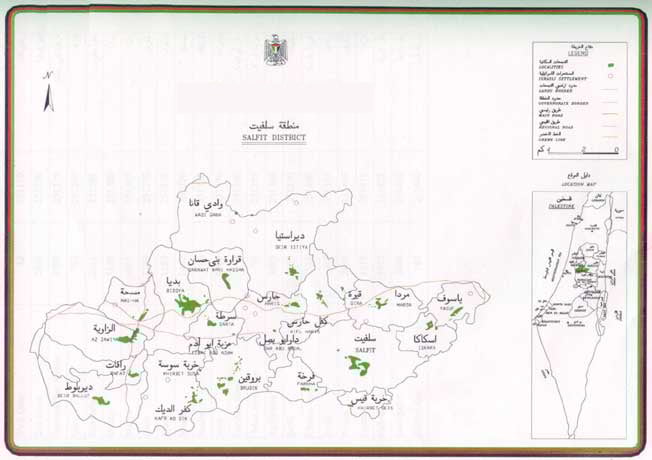 منطقة سلفيت
SALFIT DISTRICT
N
مفتاح الخريطة
LEGEND
التجمعات السكانية
LOCALITIES
المستعمرات الاسرائيلية
ISRAELI SETTLEMENT
حدود اراضي التجمعات
LANDS BORDER
حدود المنطقة
GOVERNORATE BORDER
طريق رئيسي
MAIN ROAD
طريق اقليمي
REGIONAL ROAD
الخط الاخضر
GREEN LINE
كم 4 2 0
دليل الموقع
LOCATION MAP
فلسطين
PALESTINE
سورية
وادي قانا
WADI QANA
ديراستيا
DEIR ISTIYA
قراوة بني حسان
QARAWAT BANI HASSAN
بديا
BIDDYA
مسحة
MAS-HA
حارس
HARIS
قيرة
QIRA
مردا
MARDA
ياسوف
YASUF
سرطة
SARTA
الزاوية
AZ ZAWIYA
كفل حارس
KIFL HARIS
اسكاكا
ISKAKA
سلفيت
SALFIT
رافات
RAFAT
خربة سوسة
KHIRBET SUSA
بروقين
BRUQIN
فرخة
FARKHA
ديربلوط
DEIR BALLUT
كفر الديك
KAFR AD DIK
خربة قيس
KHIRBET QEIS